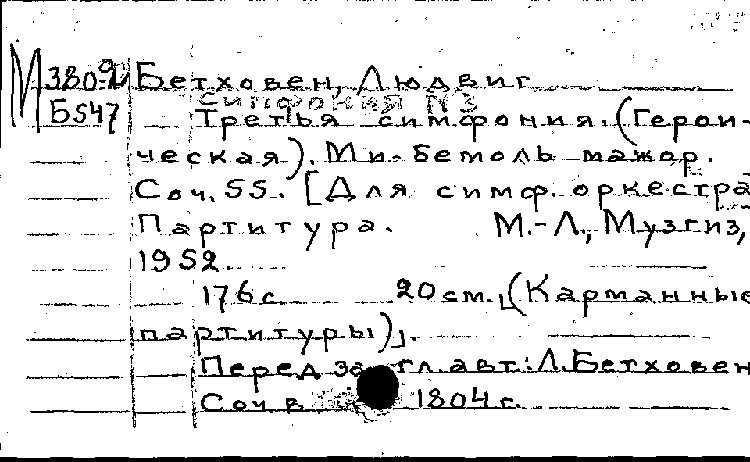 М380-2 Бетховен, Людвиг
Б547 Симфония N 3
Третья симфония. (Герои-
ческая). Ми-бемоль мажор.
Соч. 55. [Для симф. оркестра
Партитура. М.-Л., Музгиз,
1952
176 с. 20 см. (Карманные
партитуры).
Перед загл. авт: Л. Бетховен
Соч. в 1804 г.